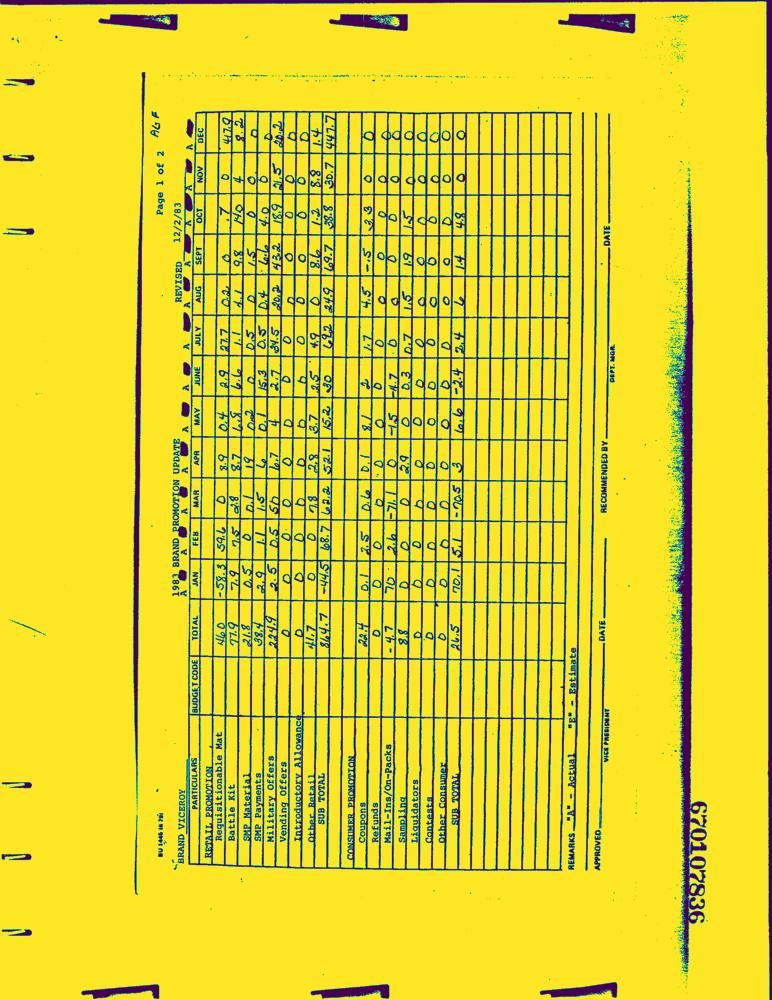 Page 1 of 2 AGF
1983 BRAND PROMOTION UPDATE REVISED 12/2/83
BU 1445 (4 78)
BRAND VICEROY A A A A A A A A A A A A
PARTICULARS BUDGET CODE TOTAL JAN FEB MAR APR MAY JUNE JULY AUG SEPT OCT NOV DEC
RETAIL PROMOTION
Requisitionable Mat -58.3 59.6 0 8.9 0.4 2.9 27.7 0.2 0 .7 0 417.9
Battle Kit 77.9 7.9 7.5 2.8 8.7 6.8 6.6 1.1 4.1 9.8 14.0 4 8.2
SMP Material 21.8 0.5 0 0.1 19 0.2 0 0.5 0 1.5 0 0 0
SMP Payments 38.4 2.9 1.1 1.5 6 0.1 15.3 0.5 0.4 6.6 4.0 0 0
Military Offers 224.9 2.5 0.5 50 6.7 4 2.7 34.5 20.2 43.2 18.9 21.5 20.2
Vending Offers 0 0 0 0 0 0 0 0 0 0 0 0 0
Introductory Allowance 0 0 0 0 0 0 0 0 0 0 0 0 0
Other Retail 41.7 0 0 7.8 2.8 3.7 2.5 4.9 0 8.6 1.2 8.8 1.4
SUB TOTAL 864.7 -44.5 68.7 62.2 52.1 15.2 30 69.2 24.9 69.7 38.8 30.7 447.7
CONSUMER PROMOTION
Coupons 22.4 0.1 2.5 0.6 0.1 8.1 2 1.7 4.5 -.5 3.3 0 0
Refunds 0 0 0 0 0 0 0 0 0 0 0 0 0
Mail-Ins/On-Packs -4.7 70 2.6 -71.1 0 -1.5 -4.7 0 0 0 0 0 0
Sampling 8.8 0 0 0 2.9 0 0.3 0.7 1.5 1.9 1.5 0 0
Liquidators 0 0 0 0 0 0 0 0 0 0 0 0 0
Contests 0 0 0 0 0 0 0 0 0 0 0 0 0
Other Consumer 0 0 0 0 0 0 0 0 0 0 0 0 0
SUB TOTAL 26.5 70.1 5.1 -70.5 3 6.6 -2.4 2.4 6 1.4 4.8 0 0
REMARKS "A" - Actual "E" - Estimate
APPROVED DATE RECOMMENDED BY DATE
VICE PRESIDENT DEPT. MGR.
670107836